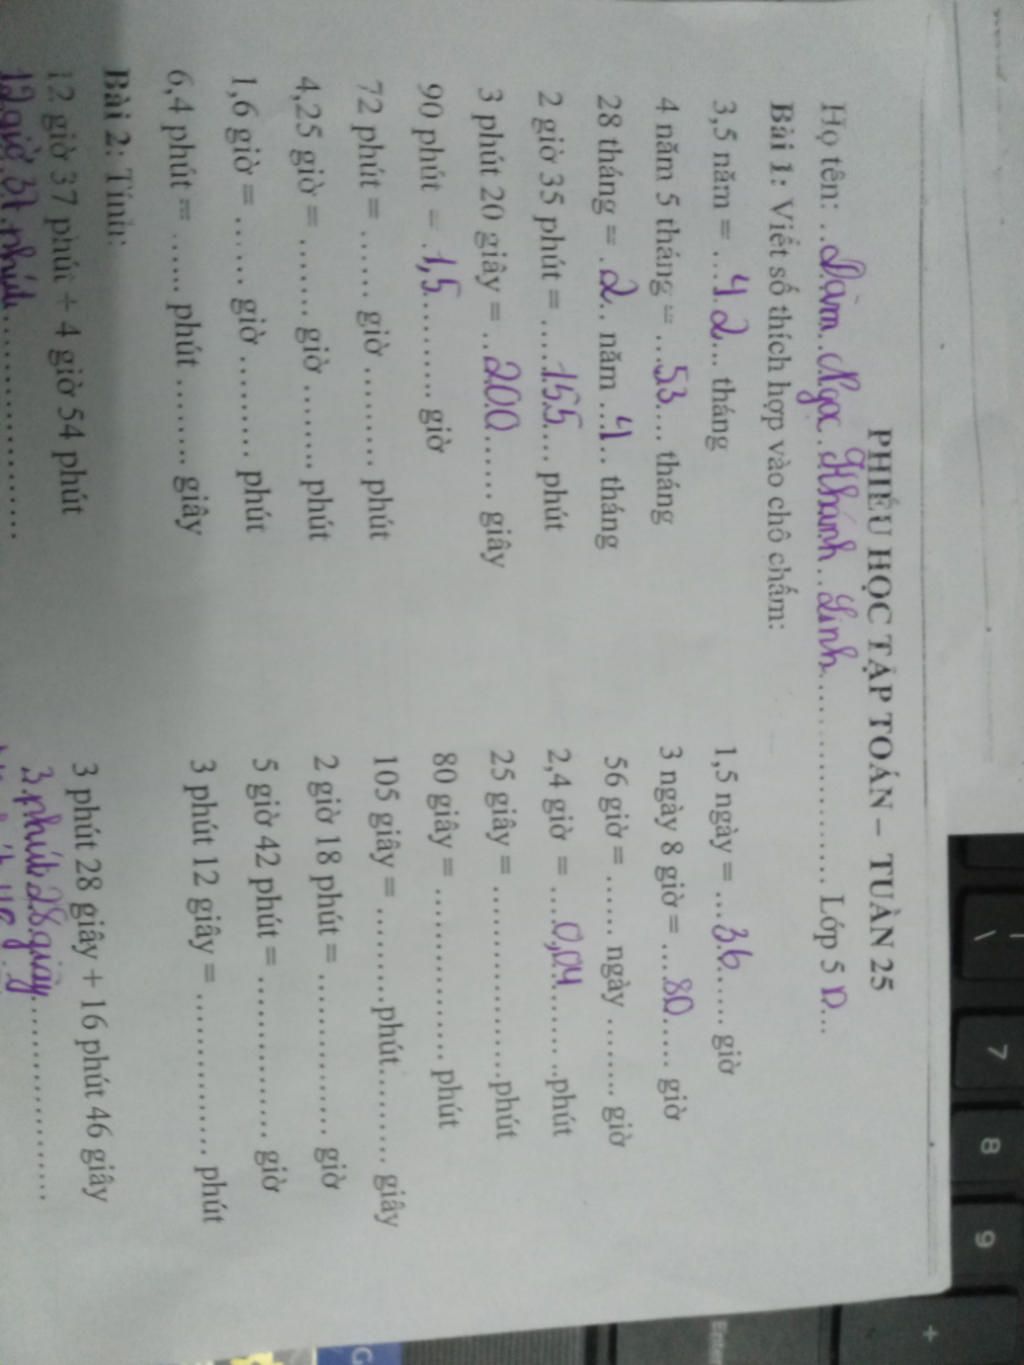 PHIẾU HỌC TẬP TOÁN – TUẦN 25
Họ tên: ..Đàm..Ngọc..Khánh..Linh.................... Lớp 5 D...
Bài 1: Viết số thích hợp vào chỗ chấm:
3,5 năm = ...42... tháng
4 năm 5 tháng = ...53... tháng
28 tháng = .2.. năm ..4.. tháng
2 giờ 35 phút = .....155.... phút
3 phút 20 giây = ..200...... giây
90 phút = .1,5.......... giờ
72 phút = ...... giờ .......... phút
4,25 giờ = ........ giờ ........ phút
1,6 giờ = ....... giờ .......... phút
6,4 phút = ...... phút ......... giây
1,5 ngày = ...36..... giờ
3 ngày 8 giờ = ....80..... giờ
56 giờ = ....... ngày ......... giờ
2,4 giờ = ....0,04........phút
25 giây = .....................phút
80 giây = ................... phút
105 giây = ..........phút........... giây
2 giờ 18 phút = ................. giờ
5 giờ 42 phút = ................. giờ
3 phút 12 giây = ................ phút
Bài 2: Tính:
12 giờ 37 phút + 4 giờ 54 phút
12 giờ 37 phút....................
3 phút 28 giây + 16 phút 46 giây
3 phút 28 giây.....................
\
7
8
9
+
Enter
G